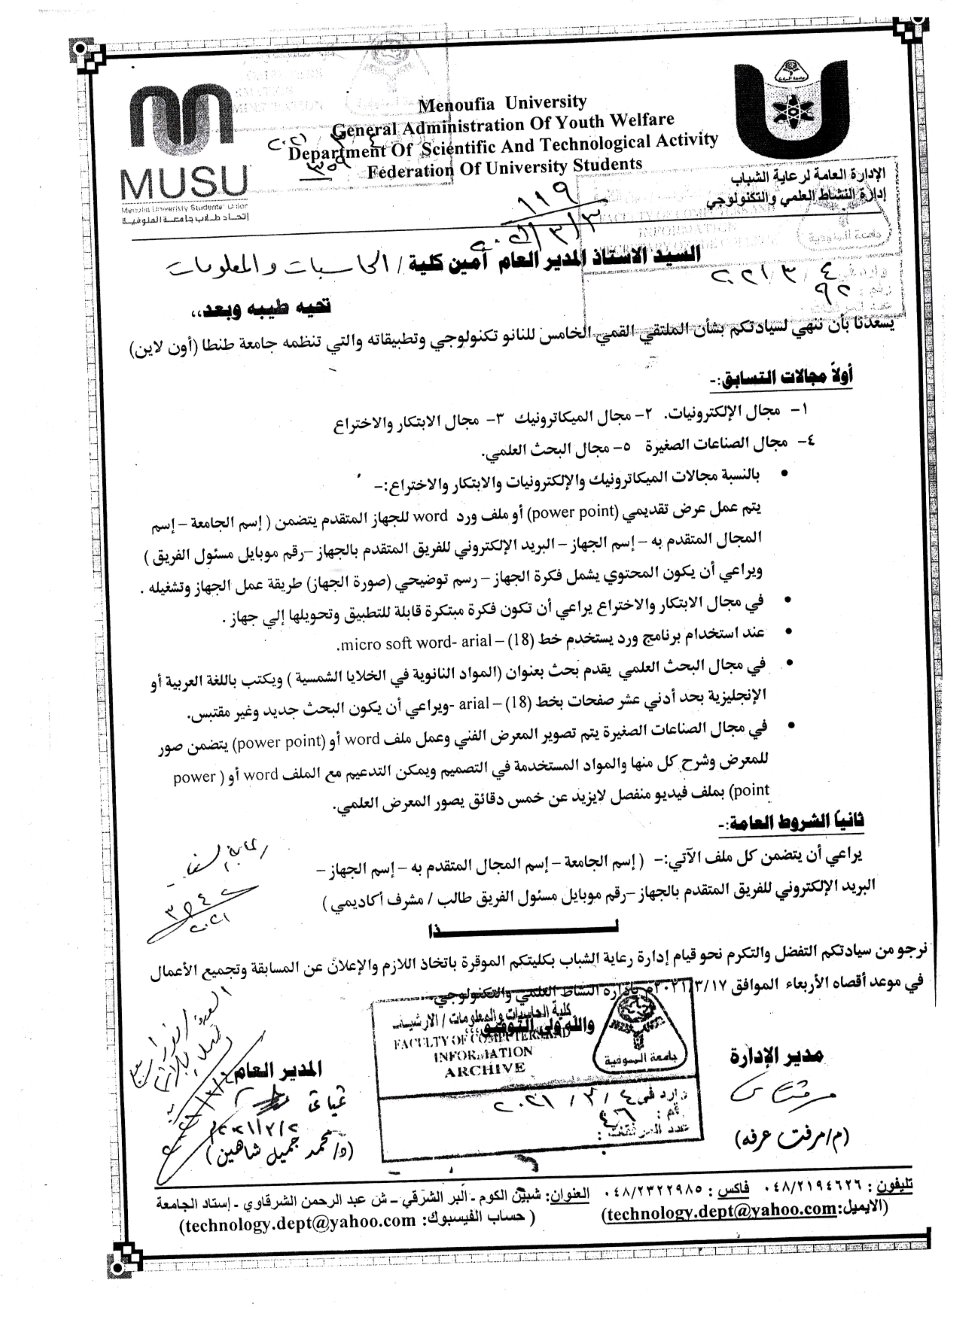 Menoufia University
General Administration Of Youth Welfare
Department Of Scientific And Technological Activity
Federation Of University Students
MUSU
Menoufia University Students' Union
إتحاد طلاب جامعة المنوفية
الإدارة العامة لرعاية الشباب
إدارة النشاط العلمي والتكنولوجي
١١٩
٢٠٢١/٣/٣
السيد الاستاذ المدير العام أمين كلية / الحاسبات والمعلومات
تحيه طيبه وبعد،،
يسعدنا بأن ننهي لسيادتكم بشأن الملتقي القمي الخامس للنانو تكنولوجي وتطبيقاته والتي تنظمه جامعة طنطا (أون لاين)
أولاً مجالات التسابق:-
١- مجال الإلكترونيات. ٢- مجال الميكاترونيك ٣- مجال الابتكار والاختراع
٤- مجال الصناعات الصغيرة ٥- مجال البحث العلمي.
• بالنسبة مجالات الميكاترونيك والإلكترونيات والابتكار والاختراع:-
يتم عمل عرض تقديمي (power point) أو ملف ورد word للجهاز المتقدم يتضمن ( إسم الجامعة – إسم
المجال المتقدم به – إسم الجهاز – البريد الإلكتروني للفريق المتقدم بالجهاز –رقم موبايل مسئول الفريق )
ويراعي أن يكون المحتوي يشمل فكرة الجهاز – رسم توضيحي (صورة الجهاز) طريقة عمل الجهاز وتشغيله .
• في مجال الابتكار والاختراع يراعي أن تكون فكرة مبتكرة قابلة للتطبيق وتحويلها إلي جهاز .
• عند استخدام برنامج ورد يستخدم خط (18) – micro soft word- arial.
• في مجال البحث العلمي يقدم بحث بعنوان (المواد النانوية في الخلايا الشمسية ) ويكتب باللغة العربية أو
الإنجليزية بحد أدني عشر صفحات بخط (18) – arial -ويراعي أن يكون البحث جديد وغير مقتبس.
• في مجال الصناعات الصغيرة يتم تصوير المعرض الفني وعمل ملف word أو (power point) يتضمن صور
للمعرض وشرح كل منها والمواد المستخدمة في التصميم ويمكن التدعيم مع الملف word أو ( power
point) بملف فيديو منفصل لايزيد عن خمس دقائق يصور المعرض العلمي.
ثانياً الشروط العامة:-
يراعي أن يتضمن كل ملف الآتي:- ( إسم الجامعة – إسم المجال المتقدم به – إسم الجهاز –
البريد الإلكتروني للفريق المتقدم بالجهاز –رقم موبايل مسئول الفريق طالب / مشرف أكاديمي )
لــــــذا
نرجو من سيادتكم التفضل والتكرم نحو قيام إدارة رعاية الشباب بكليتكم الموقرة باتخاذ اللازم والإعلان عن المسابقة وتجميع الأعمال
في موعد أقصاه الأربعاء الموافق ٢٠٢١/٣/١٧م بإدارة النشاط العلمي والتكنولوجي.
والله ولى التوفيق،،،
كلية الحاسبات والمعلومات / الارشيف
FACULTY OF COMPUTERS AND
INFORMATION
ARCHIVE
جامعة المنوفية
وارد فى ٤ / ٣ / ٢٠٢١
رقم : ٤٦
عدد المرفقات :
مدير الإدارة
(م/مرفت عرفه)
المدير العام
(د/ محمد جميل شاهين)
تليفون : ٠٤٨/٢١٩٤٦٢٦ فاكس : ٠٤٨/٢٣٢٢٩٨٥ العنوان: شبين الكوم - البر الشرقي - ش عبد الرحمن الشرقاوي - إستاد الجامعة
(الايميل:technology.dept@yahoo.com) ( حساب الفيسبوك: technology.dept@yahoo.com)